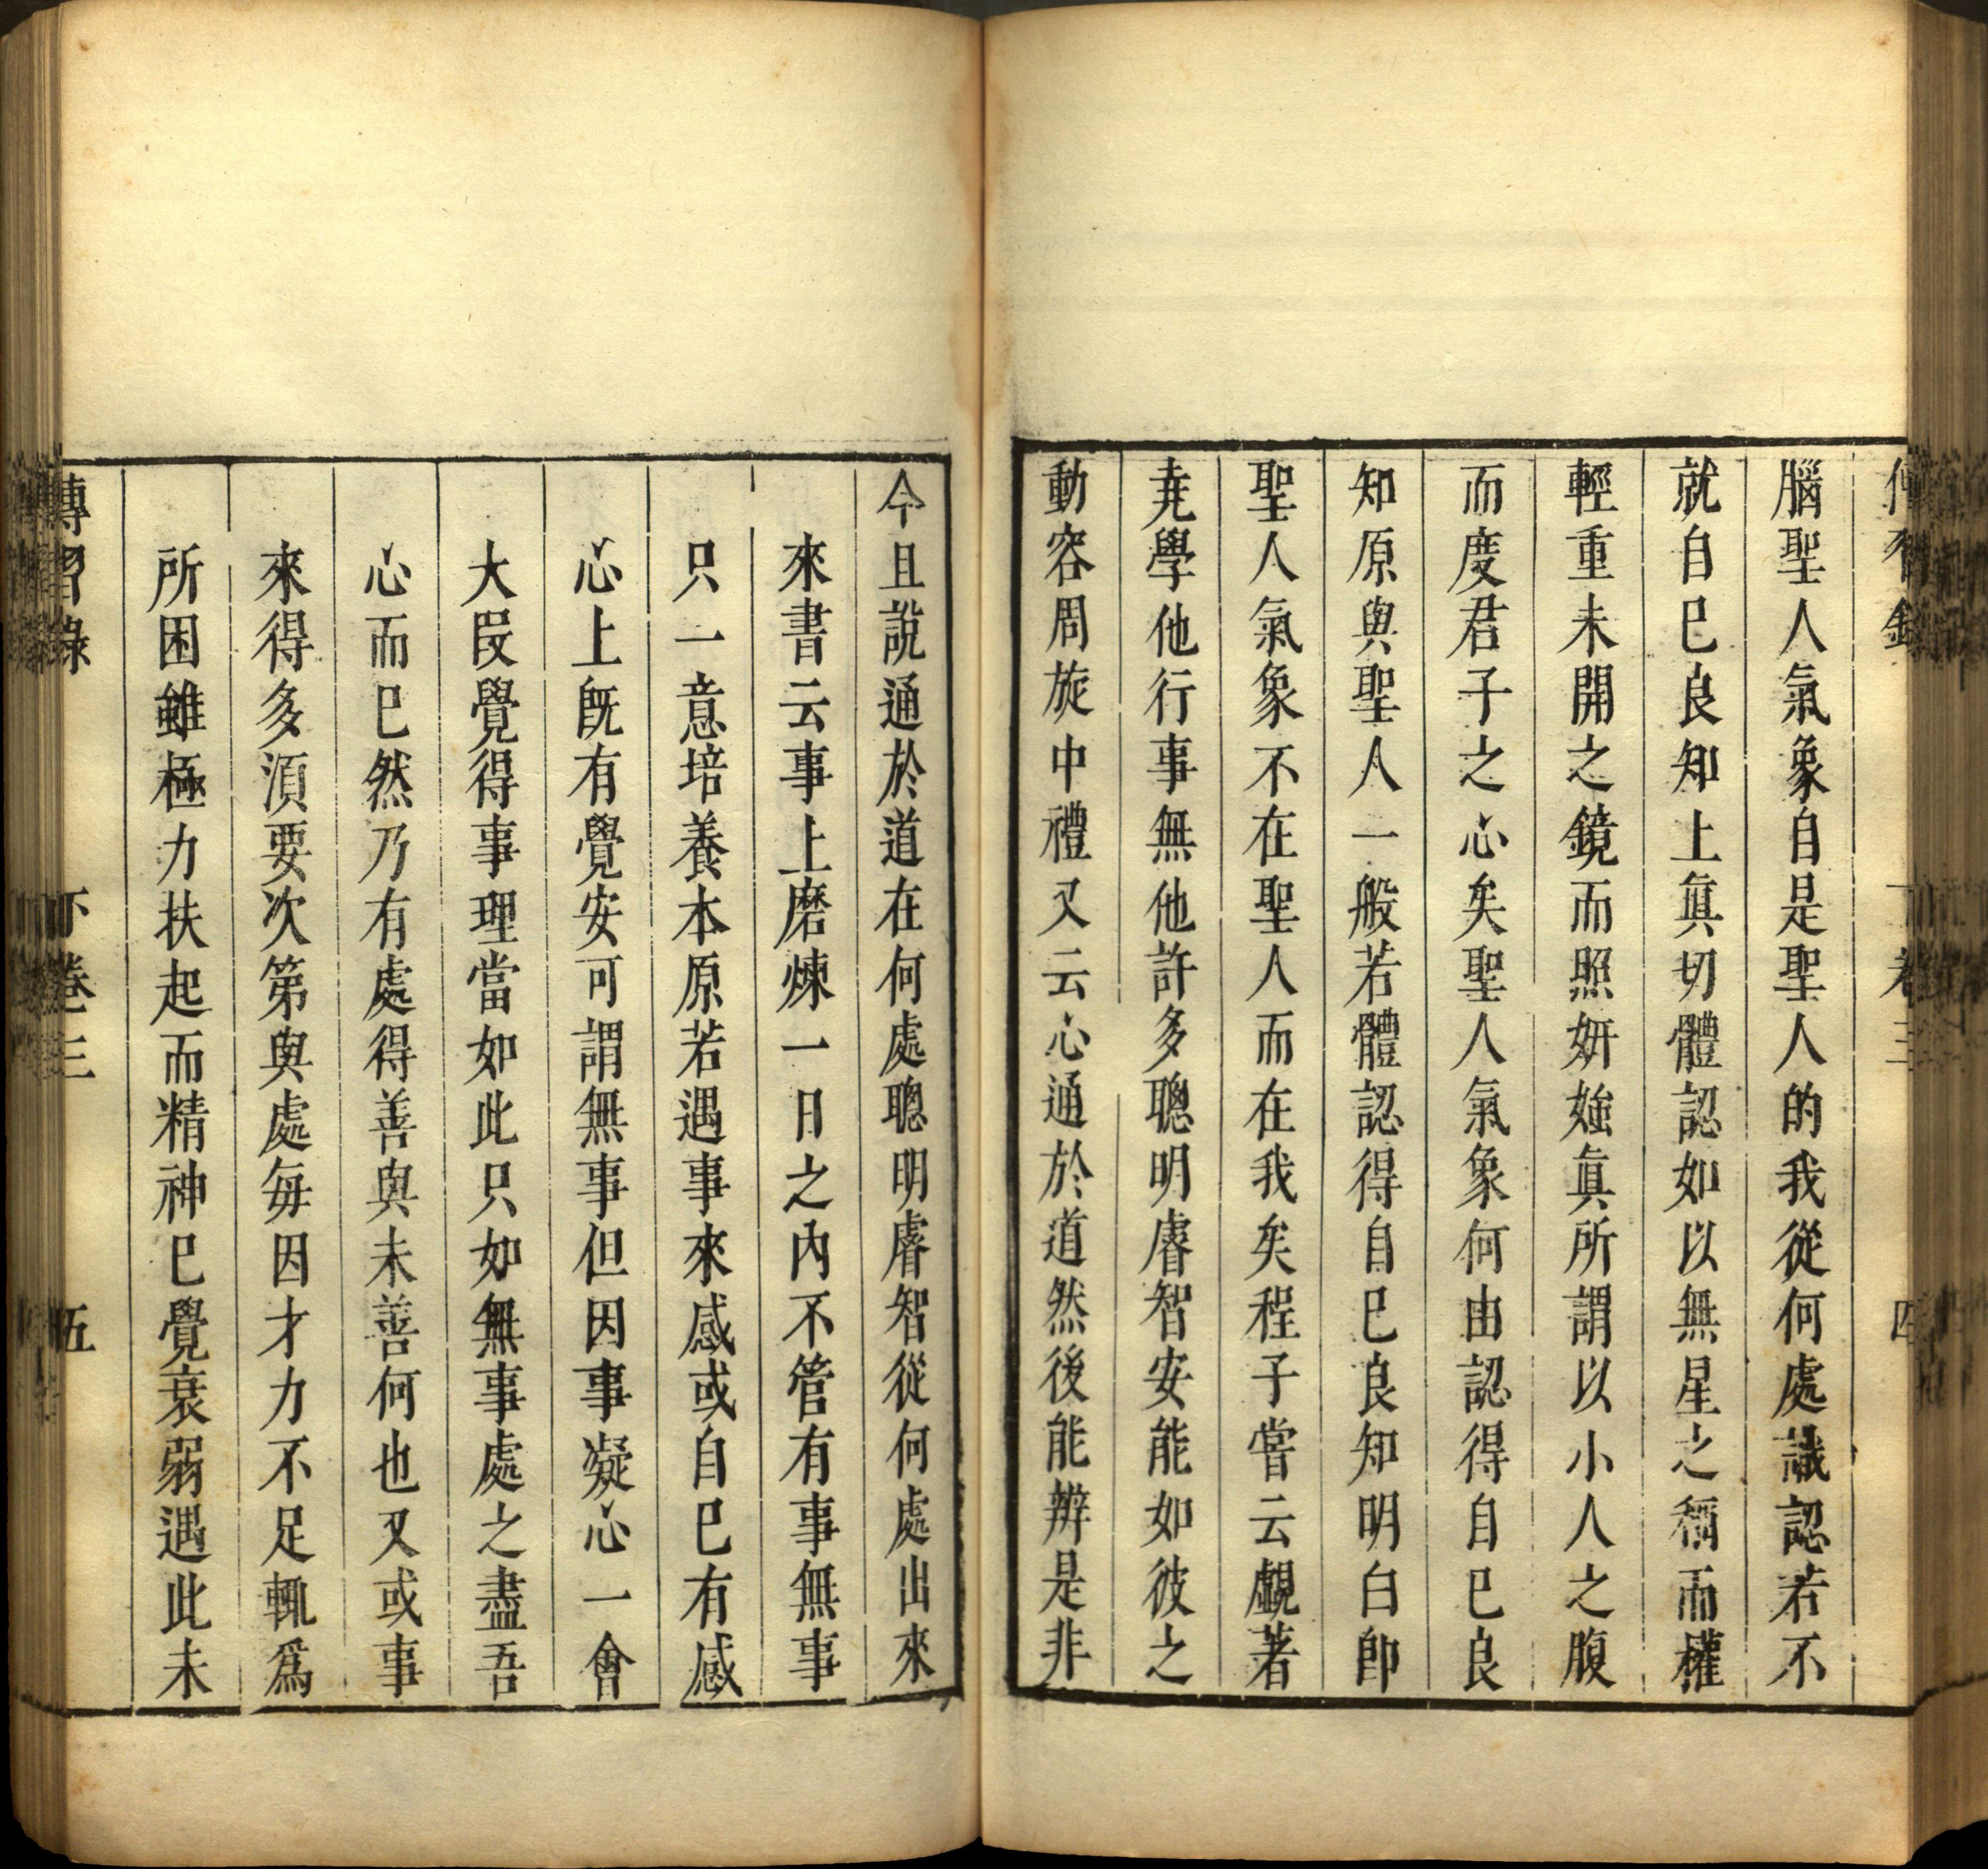 傳習錄 下卷三 四
腦聖人氣象自是聖人的我從何處識認若不
就自已良知上眞切體認如以無星之稱而權
輕重未開之鏡而照妍媸眞所謂以小人之腹
而度君子之心矣聖人氣象何由認得自已良
知原與聖人一般若體認得自已良知明白卽
聖人氣象不在聖人而在我矣程子嘗云覷著
堯學他行事無他許多聰明睿智安能如彼之
動容周旋中禮又云心通於道然後能辨是非
今且說通於道在何處聰明睿智從何處出來
來書云事上磨煉一日之內不管有事無事
只一意培養本原若遇事來感或自已有感
心上旣有覺安可謂無事但因事凝心一會
大段覺得事理當如此只如無事處之盡吾
心而已然乃有處得善與未善何也又或事
來得多湏要次第與處毎因才力不足輒爲
所困雖極力扶起而精神已覺衰弱遇此未
傳習錄 下卷三 五